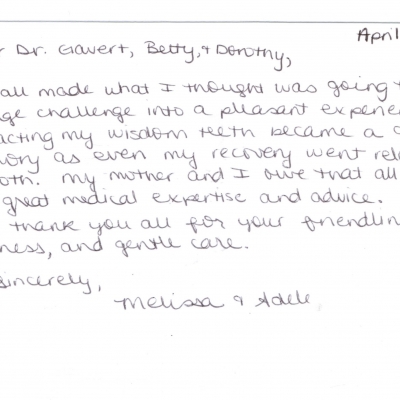 April
Dr. Gavert, Betty, & Dorothy,
all made what I thought was going t
ge challenge into a pleasant experien
acting my wisdom teeth became a
ory as even my recovery went rel
oth. My mother and I owe that all
great medical expertise and advice.
thank you all for your friendlin
ness, and gentle care.
sincerely,
Melissa & Adele